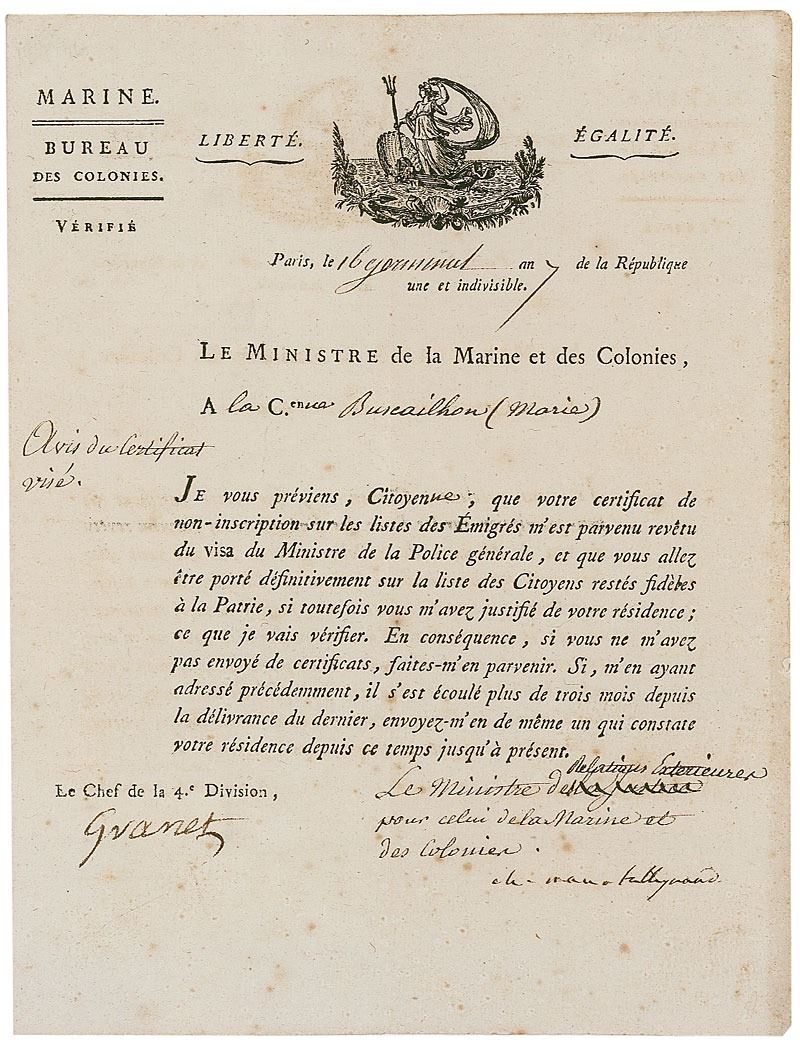 MARINE.
BUREAU
DES COLONIES.
VÉRIFIÉ
LIBERTÉ.
ÉGALITÉ.
Paris, le 16 germinal an 7 de la République
une et indivisible.
LE MINISTRE de la Marine et des Colonies,
A la C.enne Buscailhon (Marie)
Avis du Certificat
visé.
JE vous préviens, Citoyenne, que votre certificat de
non-inscription sur les listes des Émigrés m'est parvenu revêtu
du visa du Ministre de la Police générale, et que vous allez
être porté définitivement sur la liste des Citoyens restés fidèles
à la Patrie, si toutefois vous m'avez justifié de votre résidence;
ce que je vais vérifier. En conséquence, si vous ne m'avez
pas envoyé de certificats, faites-m'en parvenir. Si, m'en ayant
adressé précédemment, il s'est écoulé plus de trois mois depuis
la délivrance du dernier, envoyez-m'en de même un qui constate
votre résidence depuis ce temps jusqu'à présent.
Le Chef de la 4.e Division,
Granet
Relations Exterieures
Le Ministre de la Justice
pour celui de la Marine et
des Colonies.
ch. mau. talleyrand